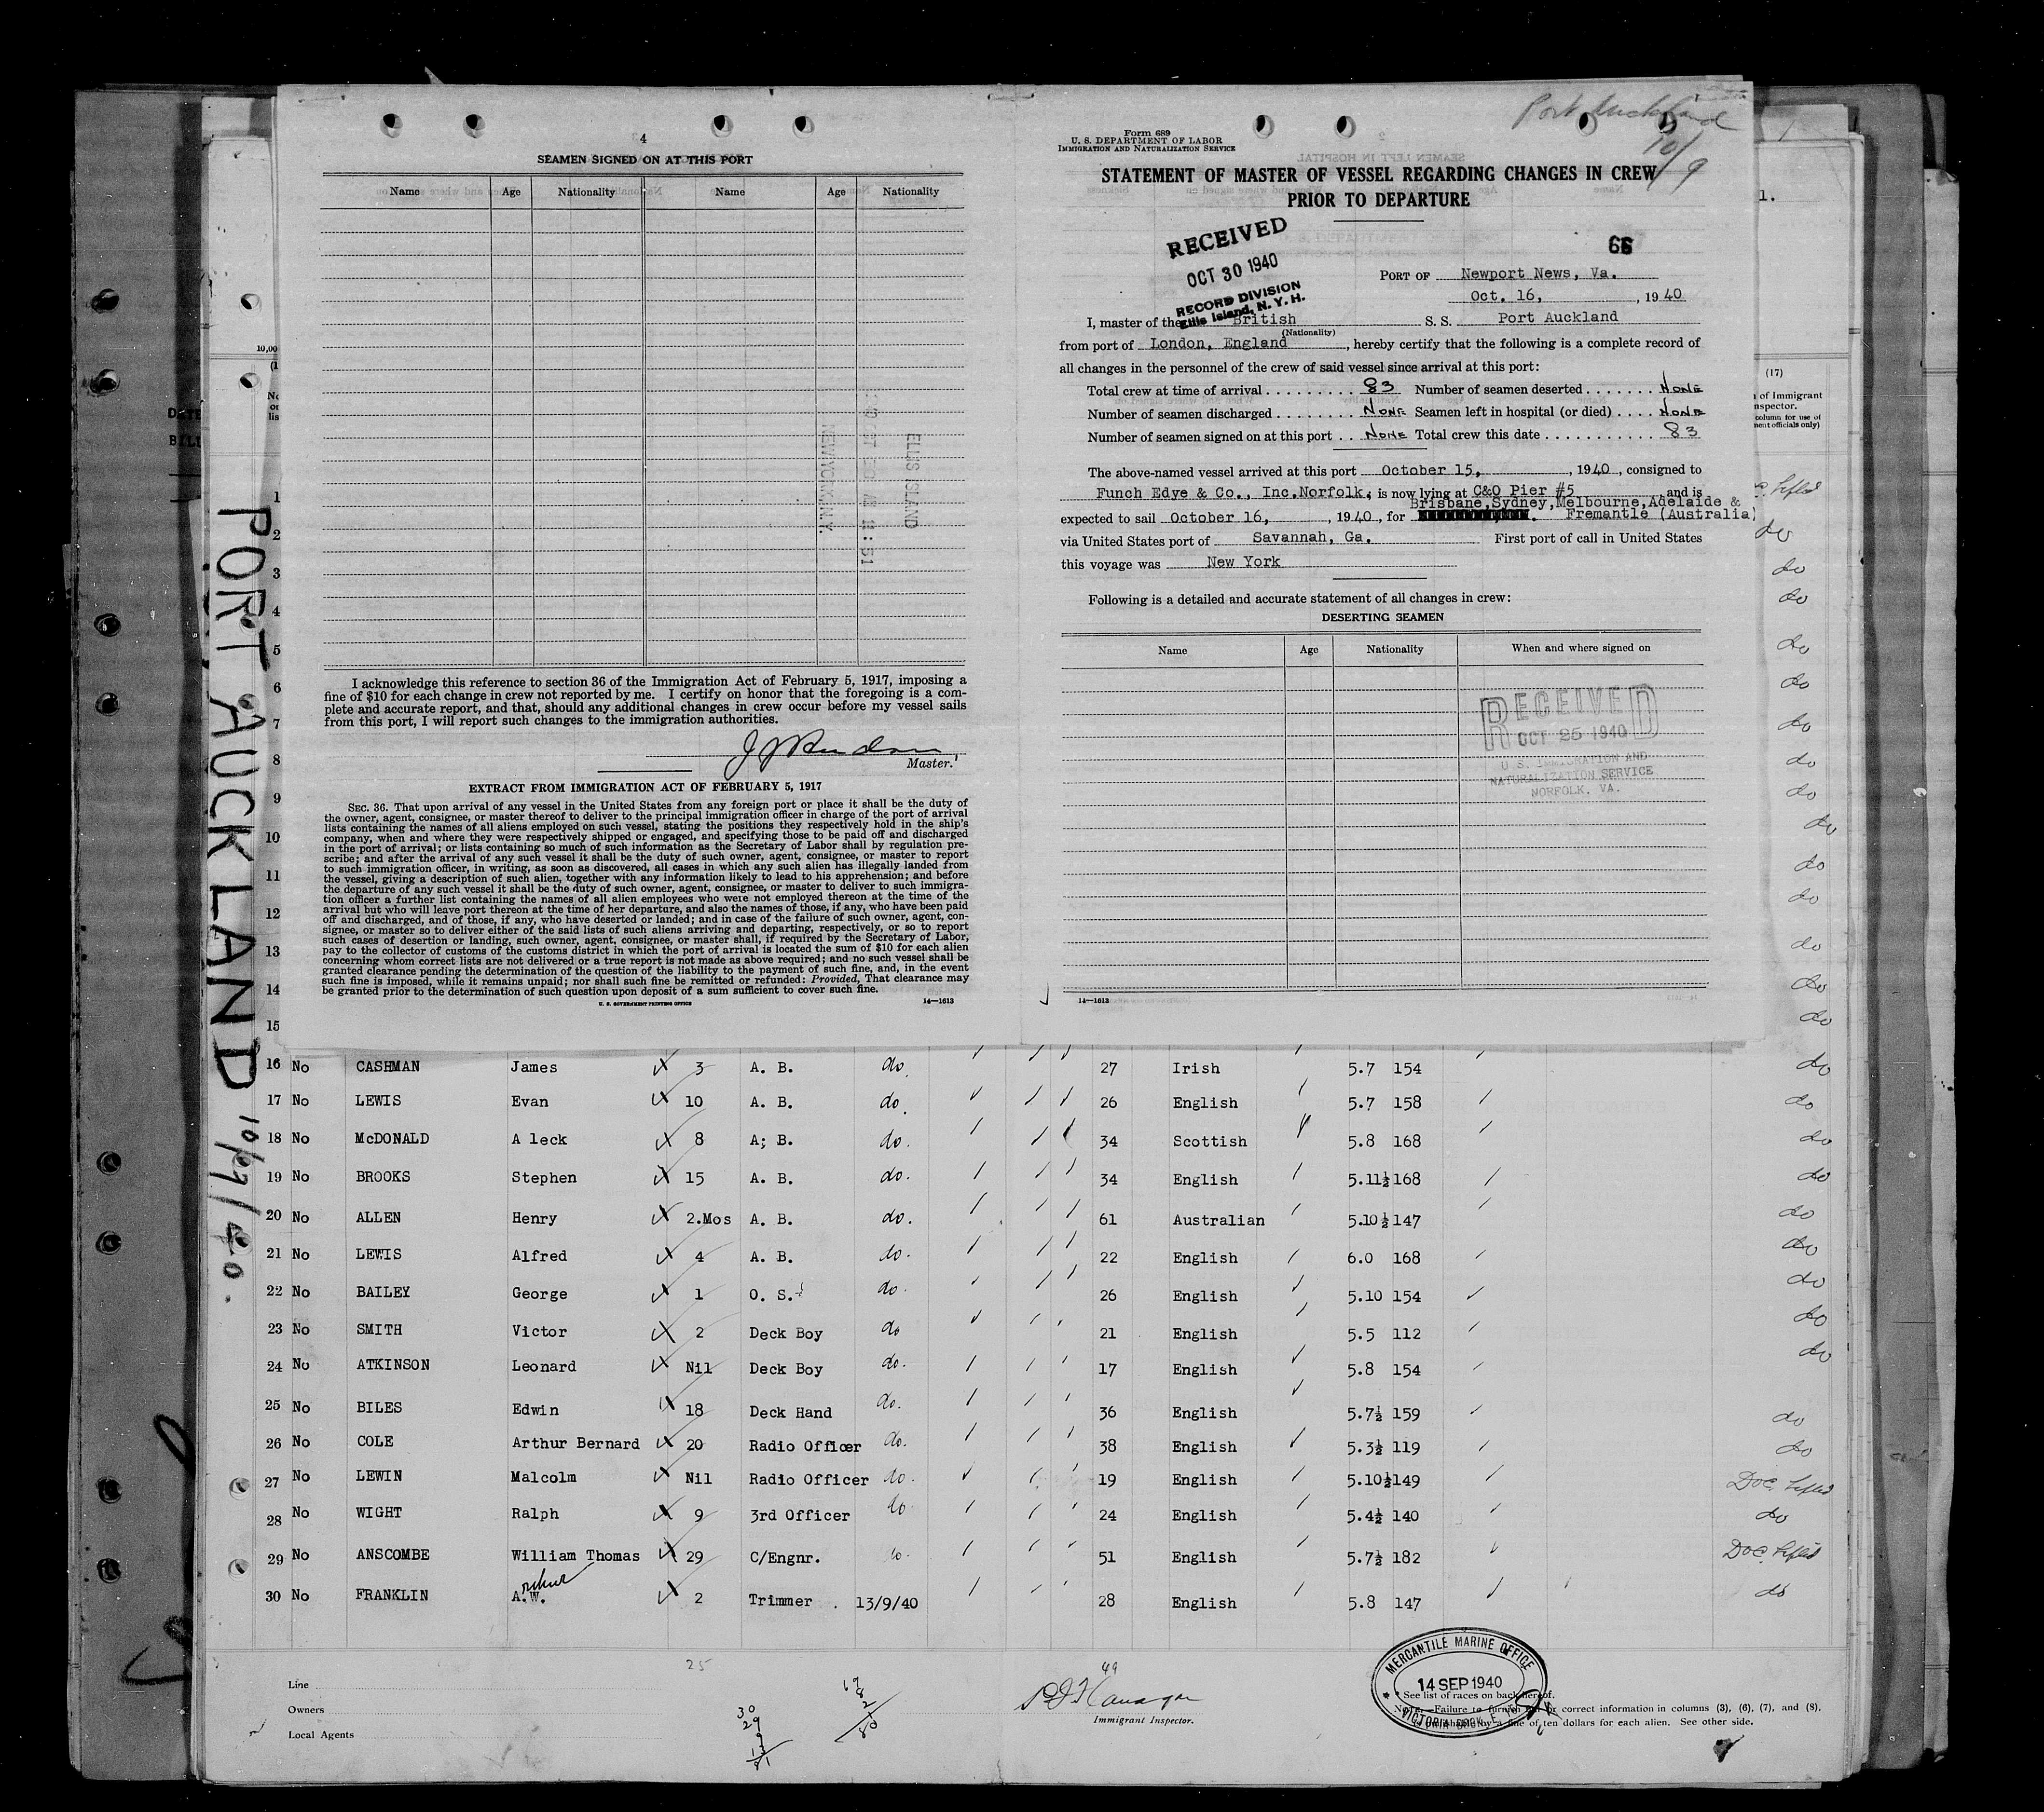 4
SEAMEN SIGNED ON AT THIS PORT
Name Age Nationality Name Age Nationality
ELLIS ISLAND
NEW YORK, N.Y.
I acknowledge this reference to section 36 of the Immigration Act of February 5, 1917, imposing a
fine of $10 for each change in crew not reported by me. I certify on honor that the foregoing is a com-
plete and accurate report, and that, should any additional changes in crew occur before my vessel sails
from this port, I will report such changes to the immigration authorities.
Master.
EXTRACT FROM IMMIGRATION ACT OF FEBRUARY 5, 1917
SEC. 36. That upon arrival of any vessel in the United States from any foreign port or place it shall be the duty of
the owner, agent, consignee, or master thereof to deliver to the principal immigration officer in charge of the port of arrival
lists containing the names of all aliens employed on such vessel, stating the positions they respectively hold in the ship's
company, when and where they were respectively shipped or engaged, and specifying those to be paid off and discharged
in the port of arrival; or lists containing so much of such information as the Secretary of Labor shall by regulation pre-
scribe; and after the arrival of any such vessel it shall be the duty of such owner, agent, consignee, or master to report
to such immigration officer, in writing, as soon as discovered, all cases in which any such alien has illegally landed from
the vessel, giving a description of such alien, together with any information likely to lead to his apprehension; and before
the departure of any such vessel it shall be the duty of such owner, agent, consignee, or master to deliver to such immigra-
tion officer a further list containing the names of all alien employees who were not employed thereon at the time of the
arrival but who will leave port thereon at the time of her departure, and also the names of those, if any, who have been paid
off and discharged, and of those, if any, who have deserted or landed; and in case of the failure of such owner, agent, con-
signee, or master so to deliver either of the said lists of such aliens arriving and departing, respectively, or so to report
such cases of desertion or landing, such owner, agent, consignee, or master shall, if required by the Secretary of Labor,
pay to the collector of customs of the customs district in which the port of arrival is located the sum of $10 for each alien
concerning whom correct lists are not delivered or a true report is not made as above required; and no such vessel shall be
granted clearance pending the determination of the question of the liability to the payment of such fine, and, in the event
such fine is imposed, while it remains unpaid; nor shall such fine be remitted or refunded: Provided, That clearance may
be granted prior to the determination of such question upon deposit of a sum sufficient to cover such fine.
U. S. GOVERNMENT PRINTING OFFICE 14—1613
Port Auckland
10/9
Form 689
U. S. DEPARTMENT OF LABOR
IMMIGRATION AND NATURALIZATION SERVICE
STATEMENT OF MASTER OF VESSEL REGARDING CHANGES IN CREW
PRIOR TO DEPARTURE
RECEIVED
OCT 30 1940
RECORD DIVISION
Ellis Island, N. Y. H.
66
PORT OF Newport News, Va.
Oct. 16, , 1940
I, master of the British S. S. Port Auckland
(Nationality)
from port of London, England , hereby certify that the following is a complete record of
all changes in the personnel of the crew of said vessel since arrival at this port:
Total crew at time of arrival 83 Number of seamen deserted NONE
Number of seamen discharged NONE Seamen left in hospital (or died) NONE
Number of seamen signed on at this port NONE Total crew this date 83
The above-named vessel arrived at this port October 15, , 1940 , consigned to
Funch Edye & Co., Inc.Norfolk, is now lying at C&O Pier #5 and is
Brisbane,Sydney,Melbourne,Adelaide &
expected to sail October 16, , 1940 , for Fremantle (Australia)
via United States port of Savannah, Ga. First port of call in United States
this voyage was New York
Following is a detailed and accurate statement of all changes in crew:
DESERTING SEAMEN
Name Age Nationality When and where signed on
RECEIVED
OCT 25 1940
U.S. IMMIGRATION AND
NATURALIZATION SERVICE
NORFOLK, VA.
14—1613
PORT AUCKLAND 10/9/40.
(17)
of Immigrant
column for use of
1
2 do
3 do
4 do
5 do
6 do
7 do
8 do
9 do
10 do
11 do
12 do
13 do
14 do
15 do
16 No CASHMAN James 3 A. B. do. 27 Irish 5.7 154 do
17 No LEWIS Evan 10 A. B. do. 26 English 5.7 158 do
18 No McDONALD A leck 8 A; B. do. 34 Scottish 5.8 168 do
19 No BROOKS Stephen 15 A. B. do. 34 English 5.11½ 168 do
20 No ALLEN Henry 2.Mos A. B. do. 61 Australian 5.10½ 147 do
21 No LEWIS Alfred 4 A. B. do. 22 English 6.0 168 do
22 No BAILEY George 1 O. S. do. 26 English 5.10 154 do
23 No SMITH Victor 2 Deck Boy do 21 English 5.5 112 do
24 No ATKINSON Leonard Nil Deck Boy do. 17 English 5.8 154 do
25 No BILES Edwin 18 Deck Hand do. 36 English 5.7½ 159 do
26 No COLE Arthur Bernard 20 Radio Officer do. 38 English 5.3½ 119 do
27 No LEWIN Malcolm Nil Radio Officer do. 19 English 5.10½ 149 Doc. Lifted
28 No WIGHT Ralph 9 3rd Officer do 24 English 5.4½ 140 do
29 No ANSCOMBE William Thomas 29 C/Engnr. do. 51 English 5.7½ 182 Doc. Lifted
30 No FRANKLIN A.W. 2 Trimmer . 13/9/40 28 English 5.8 147 do
25
49
Line
Owners
Local Agents
30
29
Immigrant Inspector.
MERCANTILE MARINE OFFICE
14 SEP 1940
VICTORIA DOCK E.16
* See list of races on back hereof.
Note.—Failure to furnish full or correct information in columns (3), (6), (7), and (8),
is punishable by a fine of ten dollars for each alien. See other side.